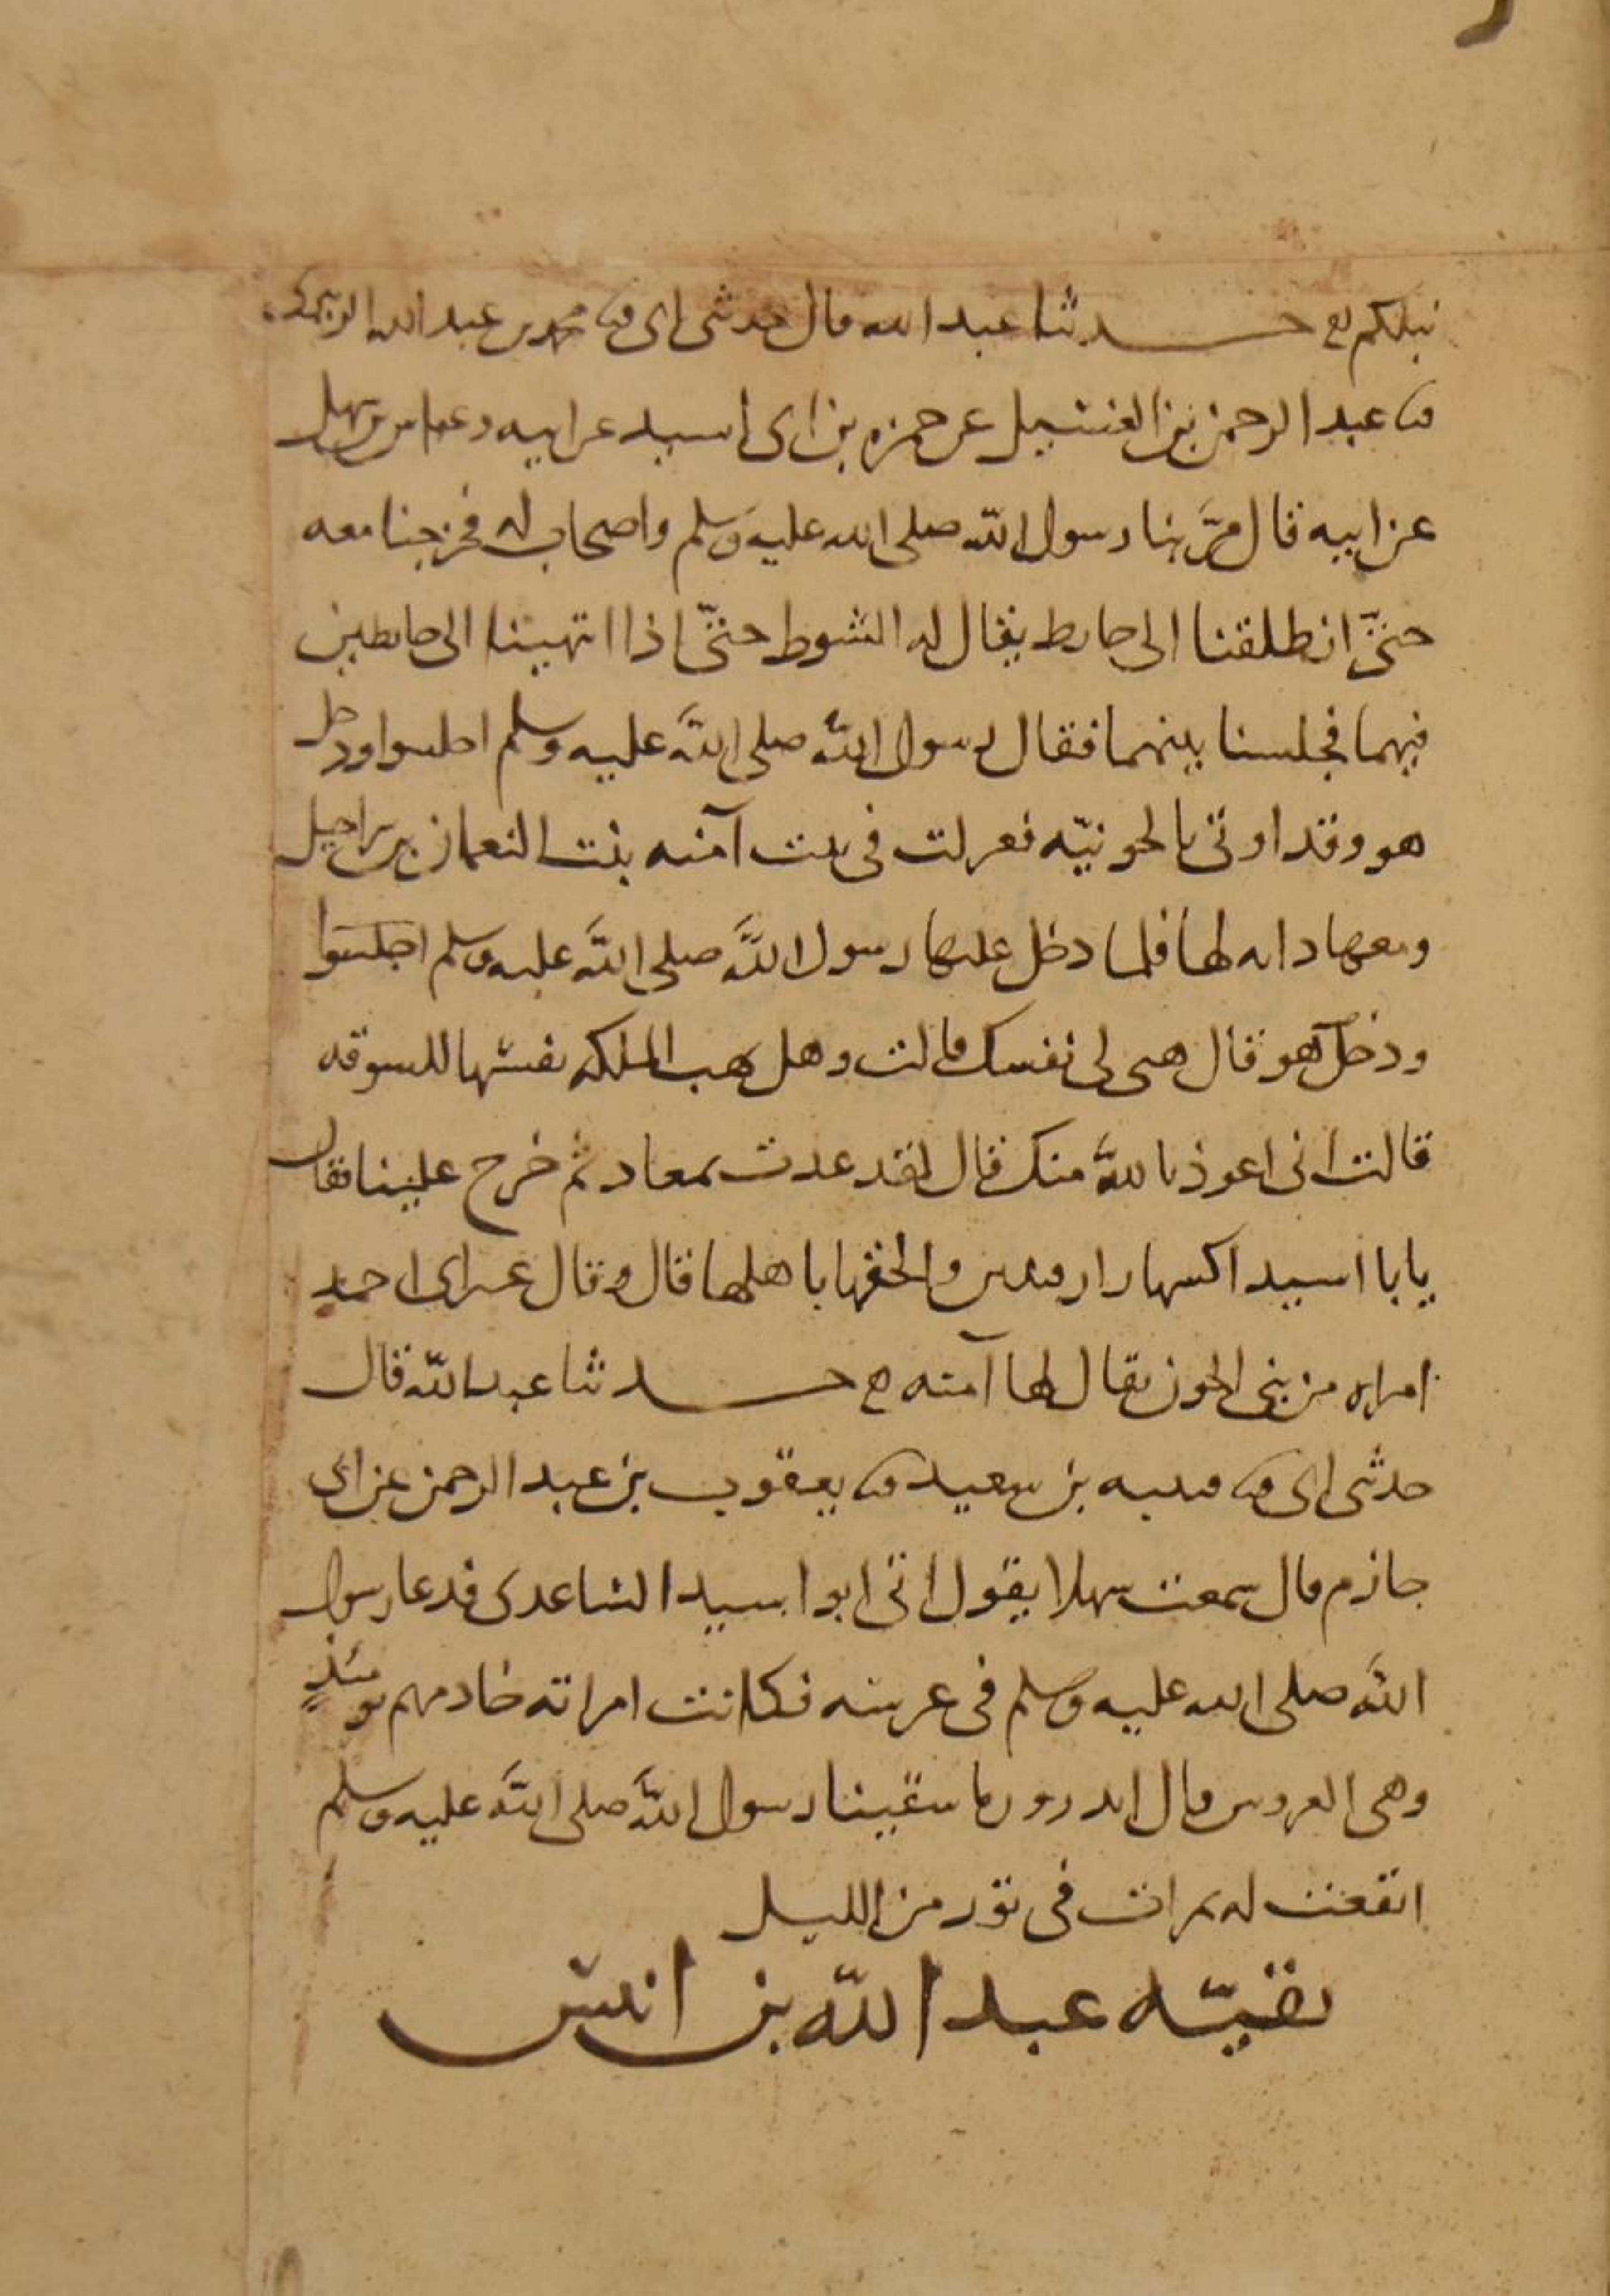 نبلكم حدثنا عبد الله قال حدثني ابي ثنا محمد بن عبد الله الزبيري
ثنا عبد الرحمن بن الغسيل عن حمزه بن ابي اسيد عن ابيه وعباس بن سهل
عن ابيه قال مرَّ بنا رسول الله صلى الله عليه وسلم واصحاب له فخرجنا معه
حتىَّ انطلقنا الى حايط يقال له الشوط حتىَّ اذا انتهينا الى حايطين
فيهما فجلسنا بينهما فقال رسول الله صلى الله عليه وسلم اجلسوا ودخل
هو وقد اوتي بالجونيّه فعزلت في بيت آمنه بنت النعمان بن شراحيل
ومعها دايه لها فلما دخل عليها رسول الله صلى الله عليه وسلم اجلسوا
ودخل هو قال هبي لي نفسك قالت وهل تهب الملكه نفسها للسوقه
قالت اني اعوذ بالله منك قال لقد عدت بمعاد ثم خرج علينا فقال
يابا اسيد اكسها رازقيتين والحقها باهلها قال وقال غير ابي احمد
امراه من بني الجون يقال لها آمنه ح حدثنا عبد الله قال
حدثني ابي ثنا قتيبه بن سعيد ثنا يعقوب بن عبد الرحمن عن ابي
حازم قال سمعت سهلا يقول اتى ابو اسيد الساعدي فدعا رسول
الله صلى الله عليه وسلم في عرسه فكانت امراته خادمهم يومئذٍ
وهي العروس قال اتدرون ما سقينا رسول الله صلى الله عليه وسلم
انقعت له تمرات في تور من الليل
بقيّه عبد الله بن انيس